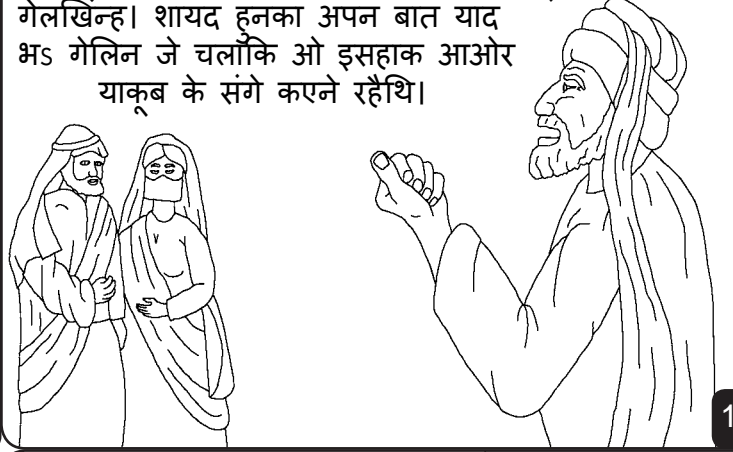 गेलखिन्ह। शायद हुनका अपन बात याद
भऽ गेलिन जे चलाॅकि ओ इसहाक आओर
याकूब के संगे कएने रहैथि।
1